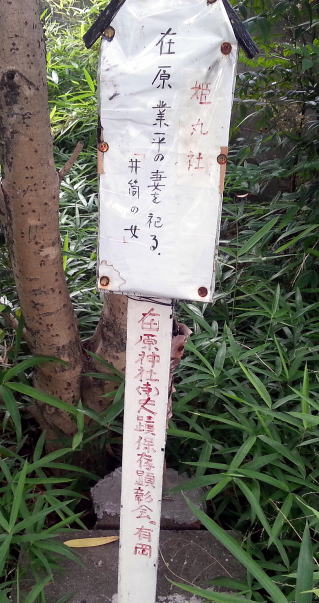 姫丸社
在原業平の妻を祀る.
「井筒の女」
在原神社史蹟保存顕彰会。有岡